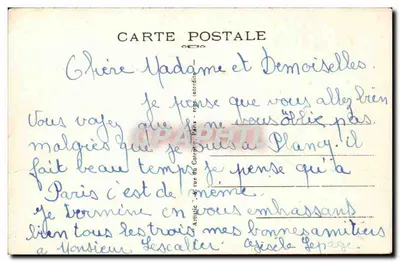 CARTE POSTALE
Chère Madame et Demoiselles.
je pense que vous allez bien
Vous voyez que je ne vous oblie pas
malgrés que je suis à Plancy il
fait beau temps je pense qu'à
Paris c'est de même.
Je termine en vous embrassant
bien tous les trois mes bonnes amitiers
à Monsieur Lescalier. Gisèle Lepage